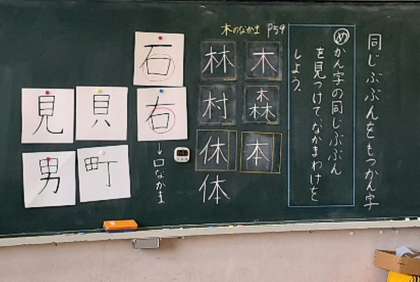 同じぶぶんをもつかん字
め かん字の同じぶぶん
を見つけて、なかまわけを
しよう。
木のなかま P59
木
森
本
林
村
休
体
石
右
→口なかま
貝
町
見
男